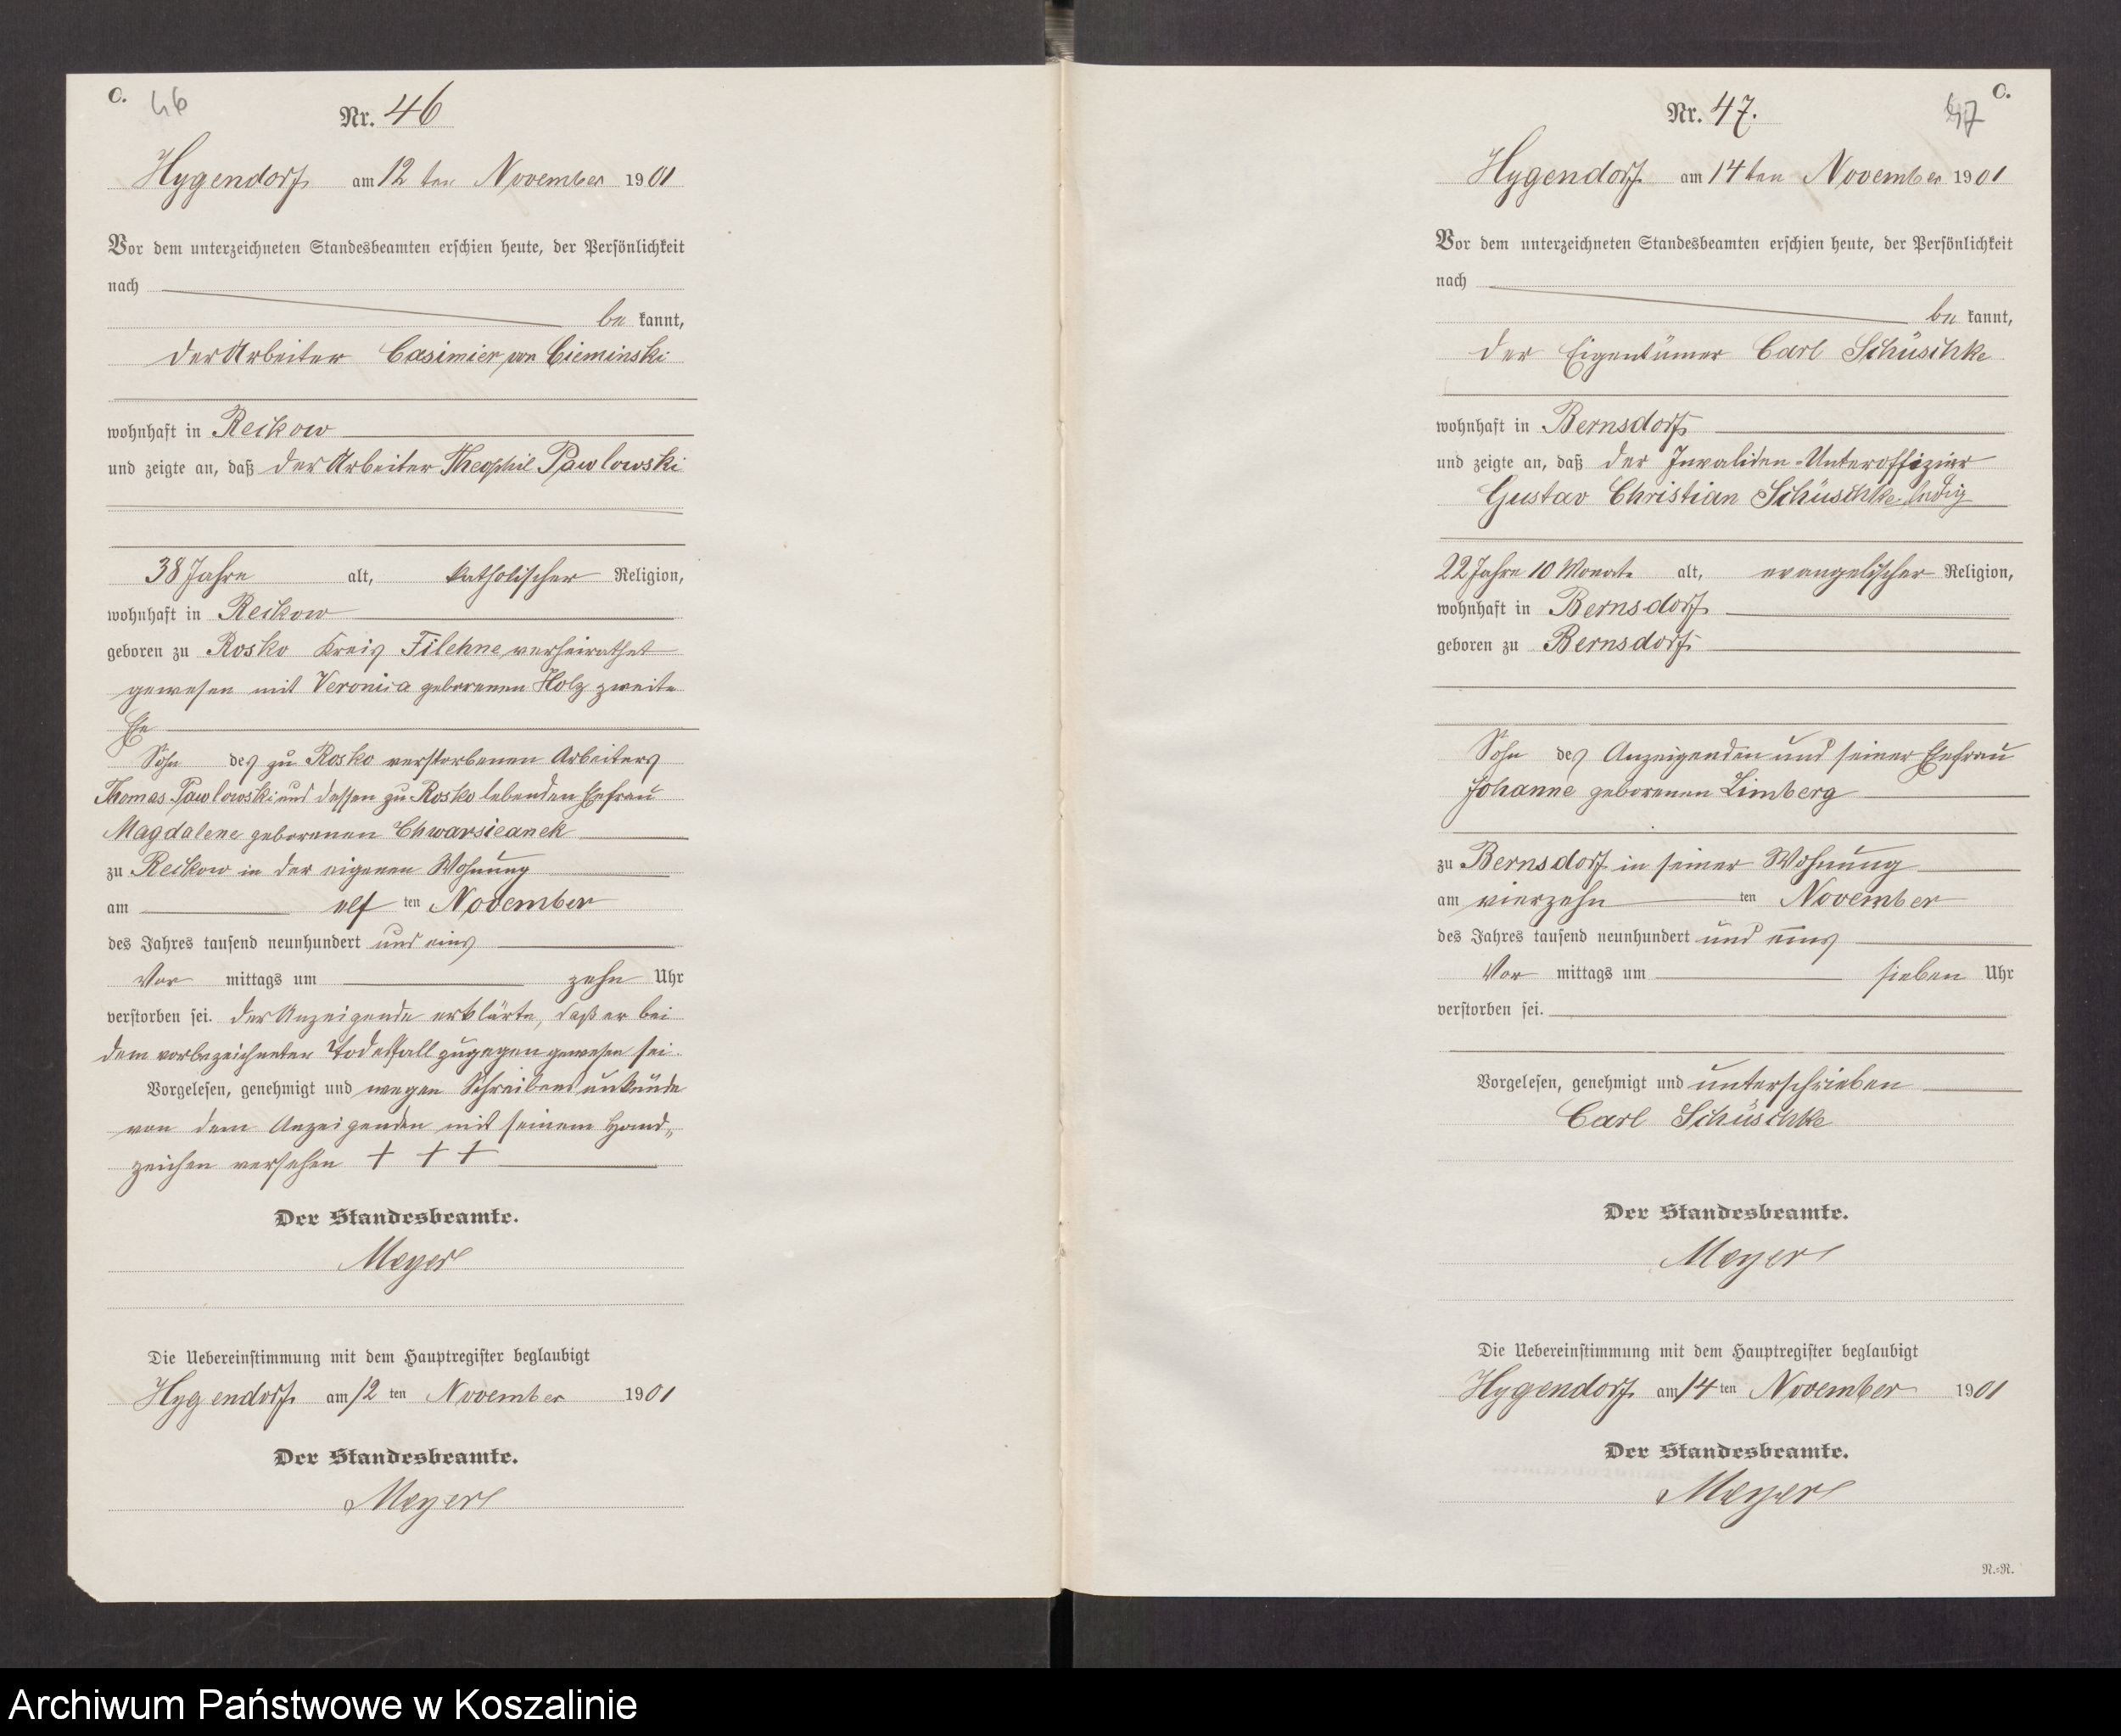 C. 46
Nr. 46
Hygendorf am 12 ten November 1901
Vor dem unterzeichneten Standesbeamten erschien heute, der Persönlichkeit
nach
be kannt,
der Arbeiter Casimier von Cieminski
wohnhaft in Reckow
und zeigte an, daß der Arbeiter Theophil Pawlowski
38 Jahre alt, katholischer Religion,
wohnhaft in Reckow
geboren zu Rosko Kreis Filehne verheirathet
gewesen mit Veronica geborenen Holz zweite
Ehe
Sohn des zu Rosko verstorbenen Arbeiters
Thomas Pawlowski und dessen zu Rosko lebenden Ehefrau
Magdalene geborenen Chwarsicanek
zu Reckow in der eigenen Wohnung
am elf ten November
des Jahres tausend neunhundert und eins
Vor mittags um zehn Uhr
verstorben sei. der Anzeigende erklärte, daß er bei
dem vorbezeichneten Todesfall zugegen gewesen sei.
Vorgelesen, genehmigt und wegen Schreibensunkunde
von dem Anzeigenden mit seinem Hand„
zeichen versehen + + +
Der Standesbeamte.
Meyer
Die Uebereinstimmung mit dem Hauptregister beglaubigt
Hygendorf am 12 ten November 1901
Der Standesbeamte.
Meyer
C.
Nr. 47. 47
Hygendorf am 14 ten November 1901
Vor dem unterzeichneten Standesbeamten erschien heute, der Persönlichkeit
nach
be kannt,
der Eigentümer Carl Schüschke
wohnhaft in Bernsdorf
und zeigte an, daß der Invaliden-Unteroffizier
Gustav Christian Schüschke ledig
22 Jahre 10 Monate alt, evangelischer Religion,
wohnhaft in Bernsdorf
geboren zu Bernsdorf
Sohn des Anzeigenden und seiner Ehefrau
Johanne geborenen Limberg
zu Bernsdorf in seiner Wohnung
am vierzehn ten November
des Jahres tausend neunhundert und eins
Vor mittags um sieben Uhr
verstorben sei.
Vorgelesen, genehmigt und unterschrieben
Carl Schüschke
Der Standesbeamte.
Meyer
Die Uebereinstimmung mit dem Hauptregister beglaubigt
Hygendorf am 14 ten November 1901
Der Standesbeamte.
Meyer
N.=N.
Archiwum Państwowe w Koszalinie